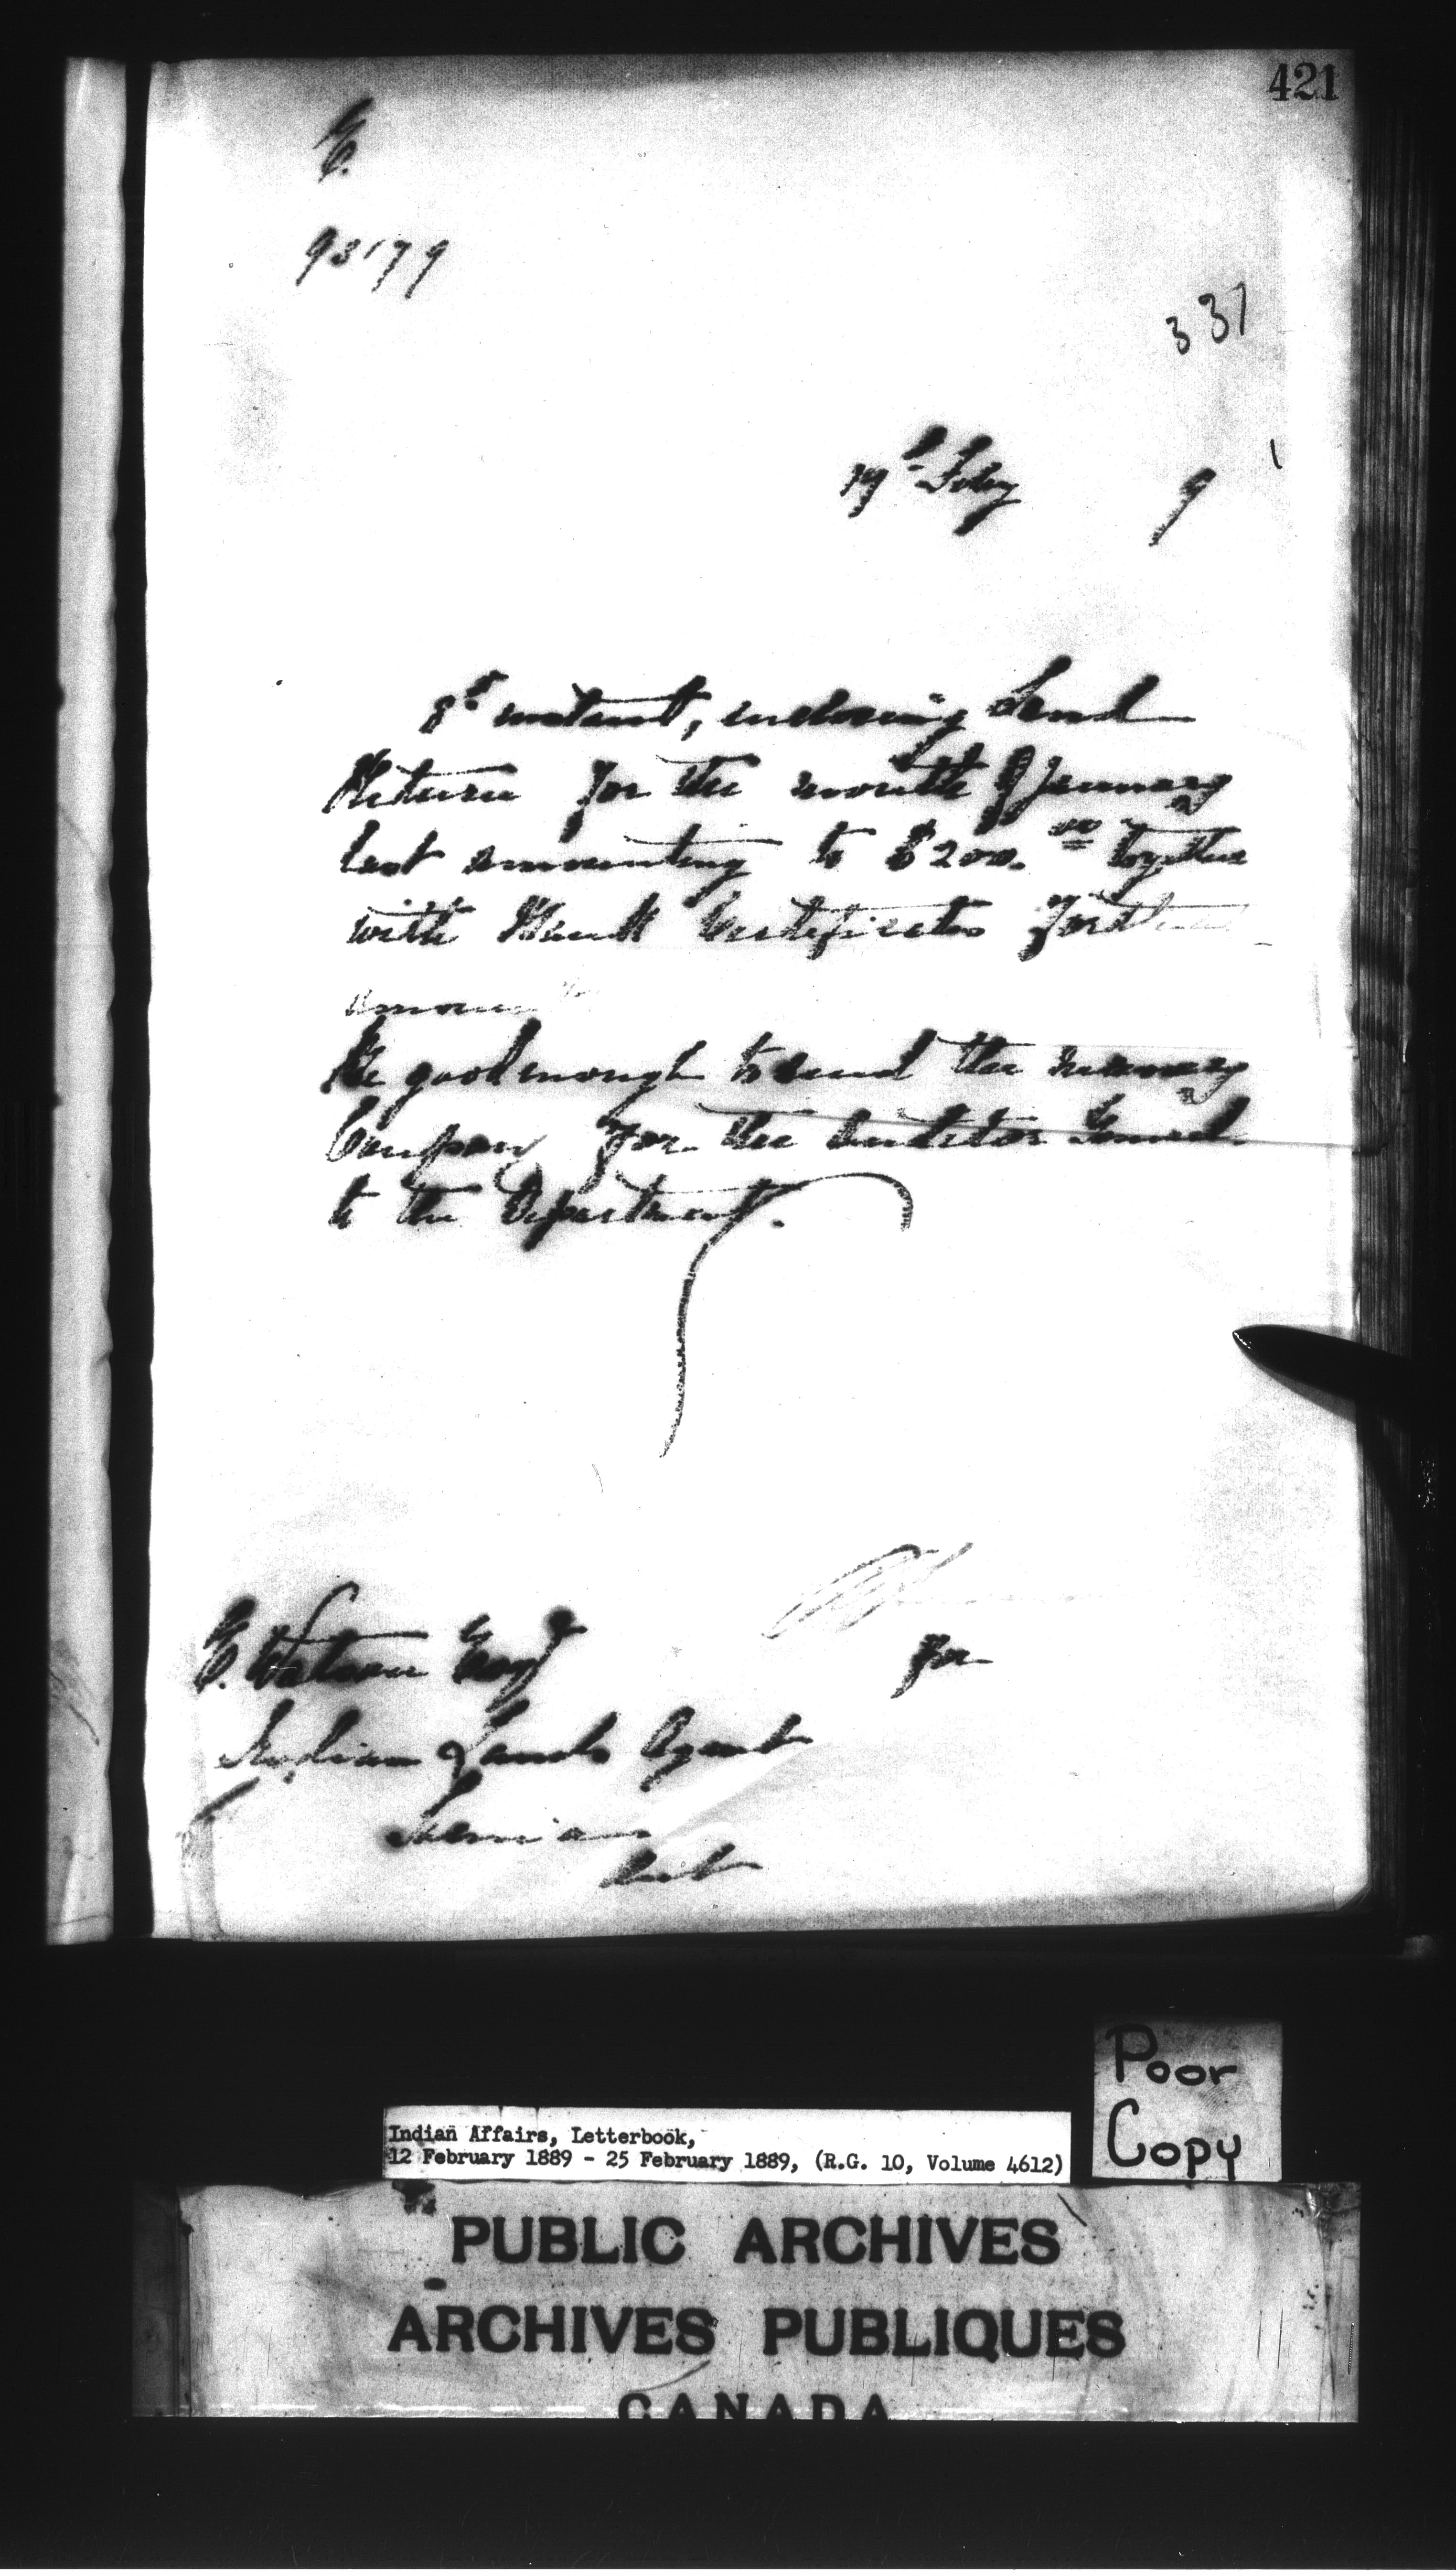 421
E.
93179
337
19th Feby 9
8th instant, enclosing Land
Return for the month of January
last amounting to $200.00 together
with Bank Certificates for
amount
Be good enough to send the necessary
Coupon for the Auditor General
to the Department.
for
E. Watson Esqr
Indian Lands Agent
Sarnia
Ont
Poor
Copy
Indian Affairs, Letterbook,
12 February 1889 - 25 February 1889, (R.G. 10, Volume 4612)
PUBLIC ARCHIVES
ARCHIVES PUBLIQUES
CANADA